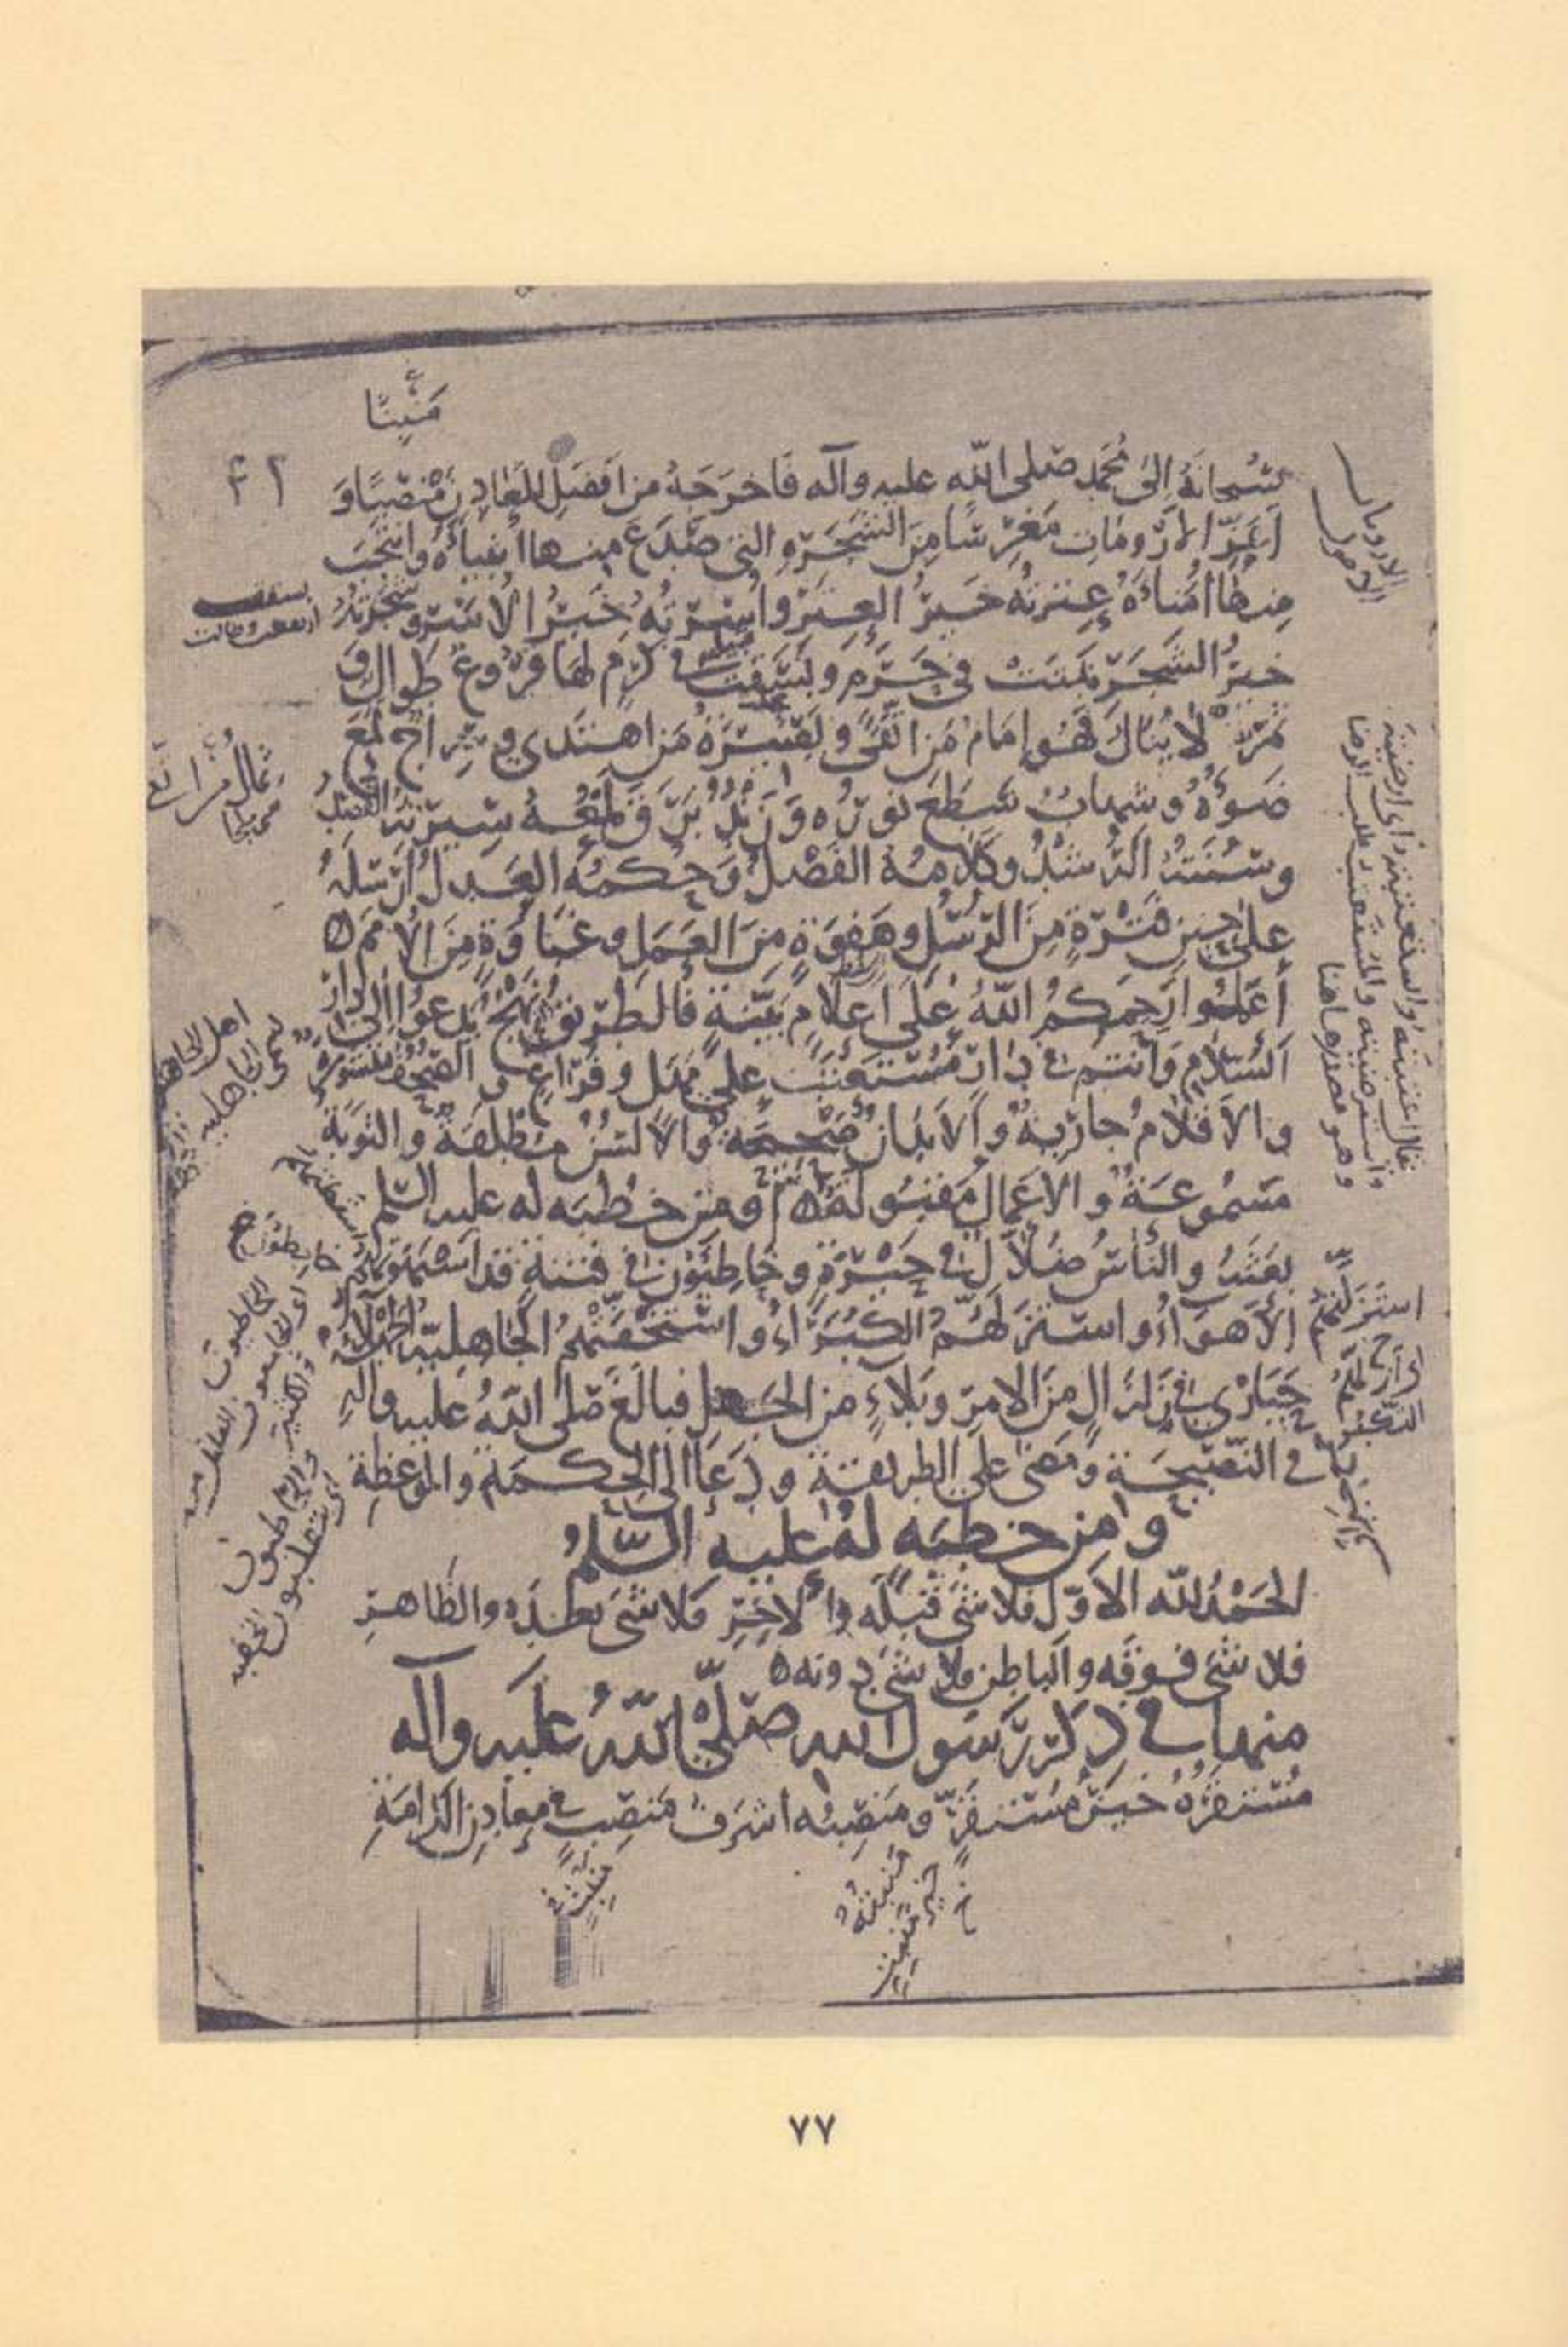 مَنْبِتًا
٤٢
سُبحانَهُ إلى مُحَمَّد صلى الله عليه وآله فَاخرَجَهُ من افضَلِ المَعادِنِ مَنْصِبًا وَ
اَعَزِّ الاَرُومَاتِ مَغرِسًا مِنَ الشَجَرَةِ التي صَدَعَ منها أنبياءَهُ وانتَجَبَ
مِنها اُمَناءَهُ عِترتهُ خَيرُ العِتَرِ واُسرَتُه خَيرُ الاُسَرِ وشَجَرَتُهُ
خيرُ الشجَرِ نَبَتَتْ في حَرَمٍ وبَسَقَت في كَرَمٍ لهَا فُرُوعٌ طِوالٌ وَ
ثَمَرٌ لا يُنالُ فَهُو إمَامُ مَنِ اتَّقى وبَصِيرَةُ مَنِ اهتَدى وسِراجٌ لمَعَ
ضَوءُهُ وشهابٌ سَطَعَ نورُه وَزَنْدٌ بَرَقَ لَمْعُهُ سِيرَتُهُ القَصْدُ
وسُنَّتُهُ الرُشْدُ وكَلامُهُ الفَصْلُ وَحُكمُهُ العَدلُ اَرْسَلَهُ
على حِينِ فَتْرَةٍ مِنَ الرُسُلِ وهَفوَةٍ مِنَ العَمَلِ وغَبَاوَةٍ مِنَ الاُمَمِ ه
اعمَلوا رَحِمَكمُ اللهُ عَلى اَعلامٍ بَيِّنَةٍ فالطَريقُ نَهْجٌ يَدعُوا إلى دَارِ
السَلامِ وَأنتم في دارِ مُستَعتَبٍ على مَهَلٍ وفَراغٍ والصُحُفُ مَنشُورَةٌ
والاَقلامُ جارِيةٌ والاَبدانُ صَحيحَةٌ والاَلسُنُ مُطلَقَةٌ والتوبَةُ
مَسمُوعَةٌ والاَعمالُ مَقبُولَةٌ ه ومن خطبه له عليه السلم
بعَثَهُ والناسُ ضُلَّالٌ في حَيْرَةٍ وخابِطُونَ في فتنةٍ قد استَهوَتْهُم
الاَهوَاءُ واستَزَلَّهُم الكُبَرَاءُ واستَخَفَّتهُم الجَاهليّةُ الجَهْلاءُ
حَيَارى في زَلزالٍ مِنَ الامرِ وبَلاءٍ من الجَهلِ فبالَغَ صَلى اللهُ عليه واله
في النَصيحَةِ ومَضى على الطريقةِ ودَعَا الى الحِكمَةِ والموعظةِ
ومن خطبه لهُ عليه السَّلمُ
الحَمْدُ لله الاَوّلِ فلا شىَ قَبلَه والآخِرِ فلا شىَ بعدَه والظَاهرِ
فلا شىَ فوقَه والباطِنِ فلا شىَ دونه ه
منها في ذِكرِ رَسُول الله صَلّى اللهُ عَليه وآله
مُستقَرُّهُ خَيرُ مُستقَرٍّ ومَنصِبُه اشرَفُ مَنصِبٍ في معادِنِ الكَرامَةِ
الارومات
الاصول
بسقت
ارتفعت وطالت
يقال اعتبته واستعتبته اى ارضيته
واسترضيته والمستعتب طلب الرضا
وهو مصدر هاهنا
استَزَلَّتهُم
مَنْبِتُهُ
خير مَنبِتٍ
مَنْبِتٍ
٧٧